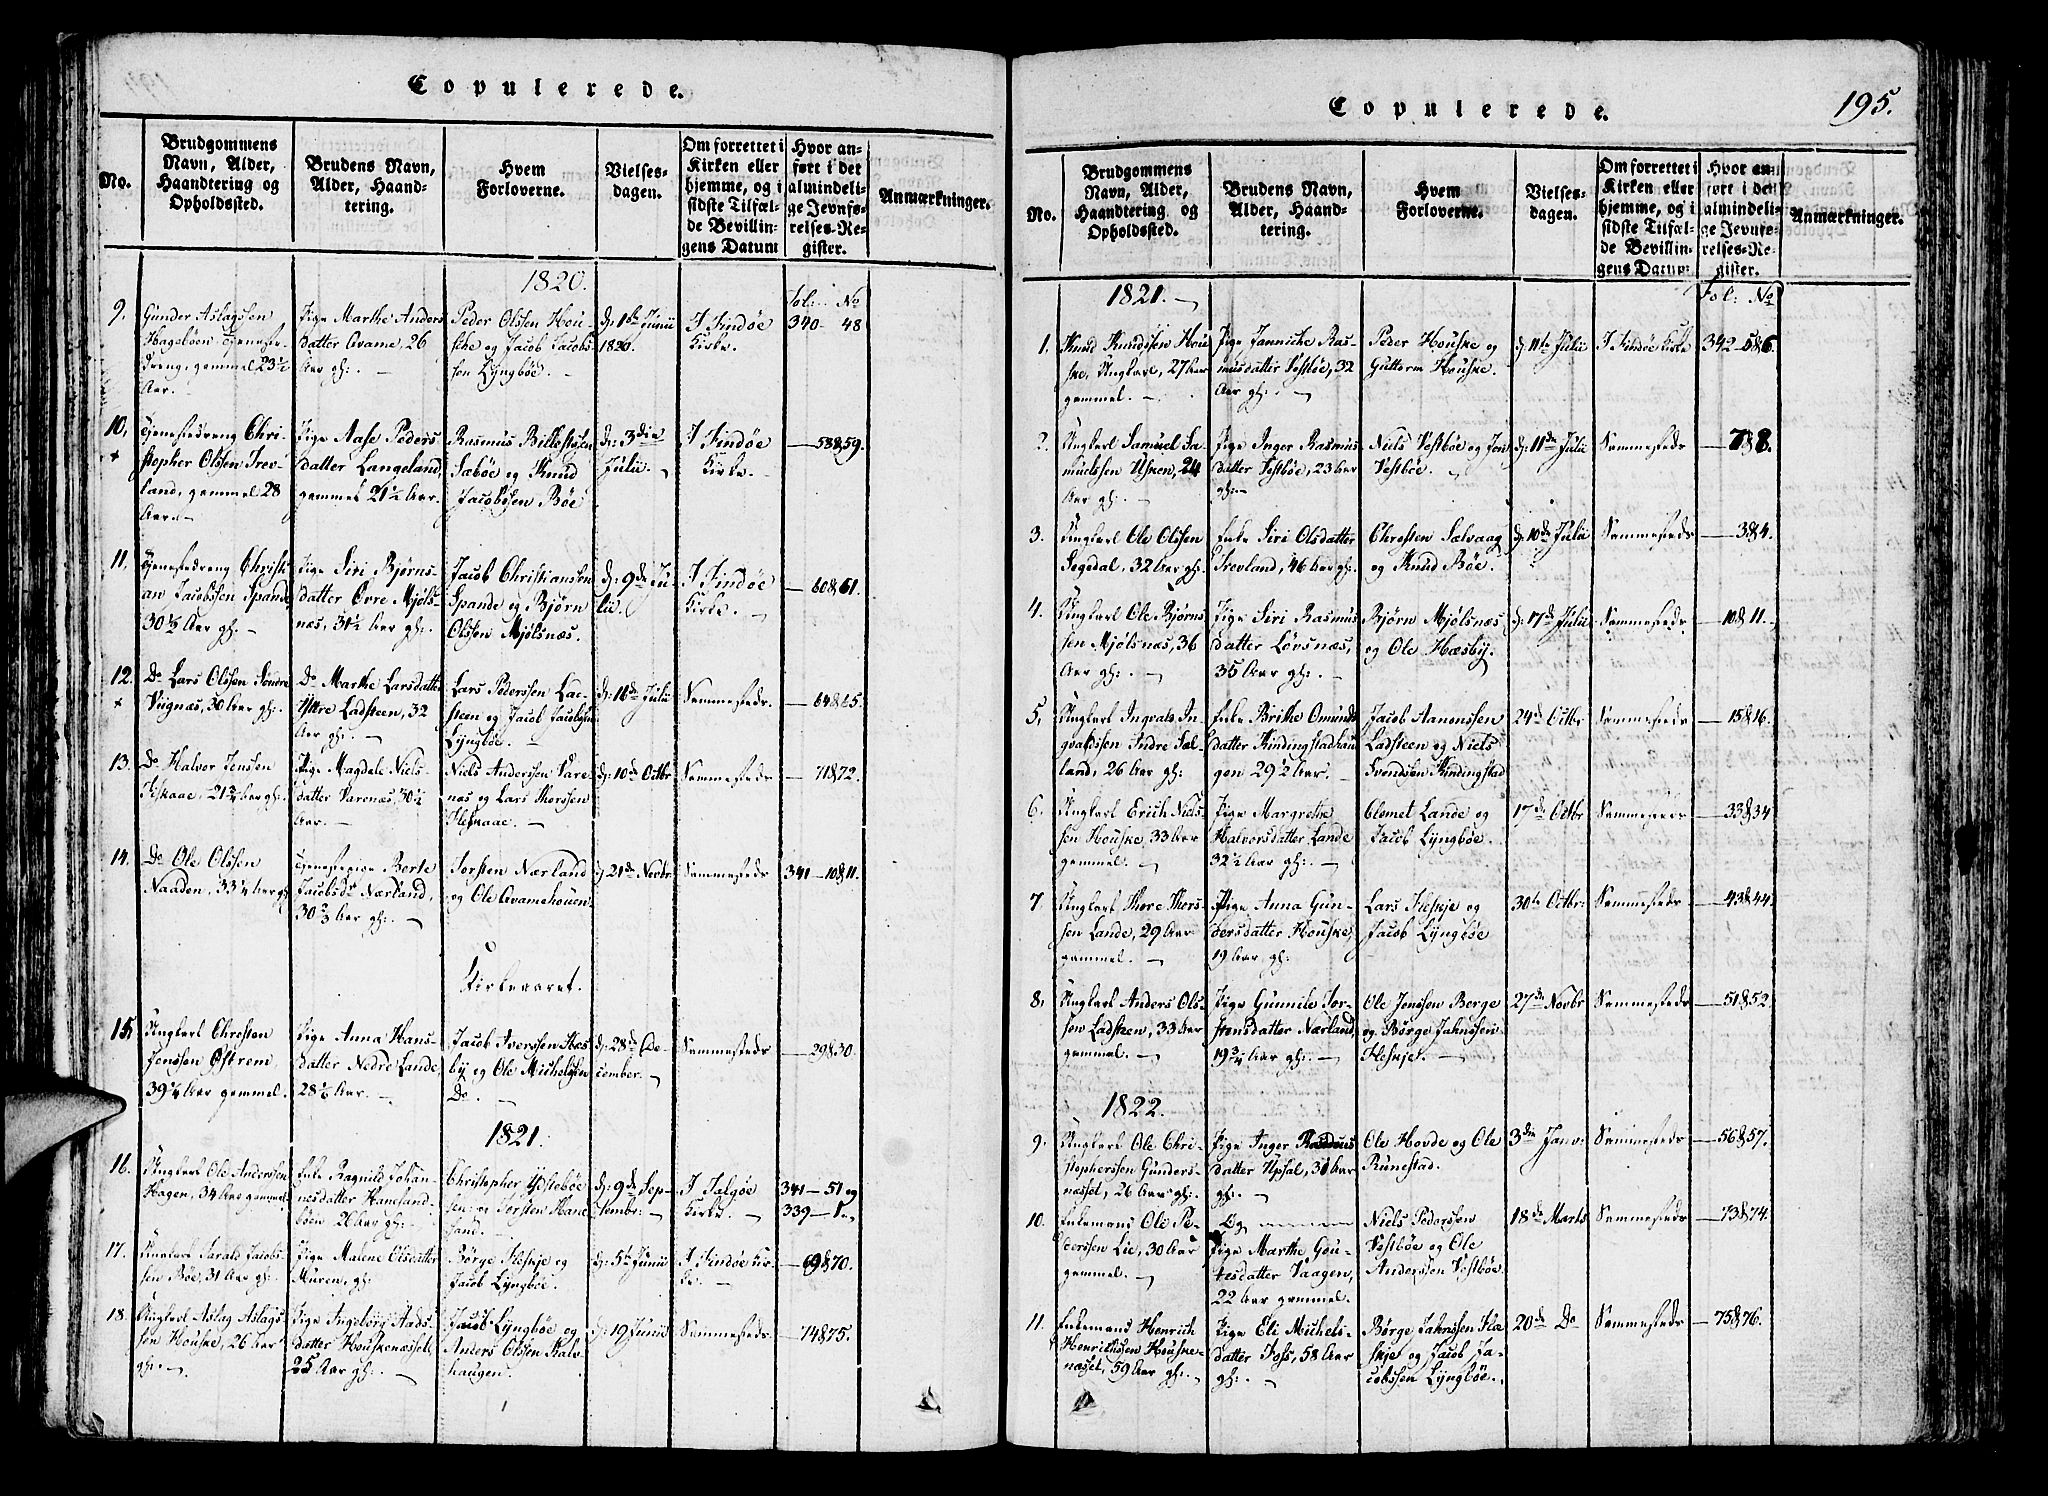 Copulerede.
No.
Brudgommens
Navn, Alder,
Haandtering og
Opholdssted.
Brudens Navn,
Alder, Haand-
tering.
Hvem
Forloverne.
Vielses-
dagen.
Om forrettet i
Kirken eller
hjemme, og i
sidste Tilfæl-
de Bevillin-
gens Datum
Hvor an-
ført i det
almindeli-
ge Jevnfø-
relses-Re-
gister.
Anmærkninger.
1820.
Fol: No
9. Gunder Aslagsen
Hagebøen
dreng, gammel 23½
Aar.
Pige Marthe Anders
datter Qvame, 26
Aar gl: .
Peder Olssen Hou-
ske og Jacob Jacobs-
sen Lyngbøe.
d: 1ste Junii
1820.
I Findøe
Kirke.
340 - 48
10. Tjenestedreng Chri-
stopher Olssen Trev-
land, gammel 28
Aar.
Pige Aase Peders
datter Langeland,
gammel 21½ Aar.
Rasmus Billestssen
Sæbøe og Knud
Jacobssen Bøe
d: 3die
Julii.
I Findøe
Kirke.
58&59.
11. Tjenestedreng Christi-
an Jacobssen Spande
30½ Aar gl:
Pige Siri Bjørns-
datter Øvre Mjøls-
næs, 31½ Aar gl:
Jacob Christianssen
Spande og Bjørn
Olssen Mjølsnæs.
d: 9de Ju-
lii.
I Findøe
Kirke.
60&61.
12. Do Lars Olssen Søndre
Vignæs, 30 Aar gl:
Do Marthe Larsdatter
Yttre Ladsteen, 32
Aar gl:
Lars Pederssen Lad-
steen og Jacob Jacobssen
Lyngbøe.
d: 16de Julii
Sammesteds.
64&65.
13. Do Halvor Jenssen
Fiskaae, 21¾ Aar gl:
Pige Magdele Niels-
datter Varenæs, 30½
Aar.
Niels Anderssen Vare-
næs og Lars Thorssen
Fleskaae.
d: 10de Octbr
Sammesteds
71&72.
14. Do Ole Olssen
Naaden, 33¼ Aar gl:
Tjenestepige Berte
Jacobsdr Nærland,
30⅔ Aar gl:
Torsten Nærland
og Ole Qvamehouen.
d: 21de Novbr
Sammesteds
341 - 10&11.
Kirkeaaret.
15. Ungkarl Christen
Jenssen Østrem,
39¼ Aar gammel.
Pige Anna Hans-
datter Nedre Lande,
28½ Aar.
Jacob Iverssen Hæs-
by og Ole Michelssen
Do.
d: 28de De-
cember.
Sammesteds
29&30.
1821.
16. Ungkarl Ole Anderssen
Hagen, 34 Aar gammel
Enke Ragnild Johan-
nesdatter Haneland-
bøen 26 Aar gl:
Christopher Ystebøe
og Torsten Hane
land.
d: 9de Sep-
tembr:
I Talgøe
Kirke.
341 - 51 og
339 - 1.
17. Ungkarl Harald Jacobs-
sen Bøe, 31 Aar gl:
Pige Malene Olsdatter
Muren, gl:
Børge Fleskje og
Jacob Lyngbøe.
d: 5te Junii
I Findøe Kir-
ke.
69&70.
18. Ungkarl Aslag Aslags
sen Houske, 26 Aar
gl:
Pige Ingeborg Aads-
datter Houskenæsset,
25 Aar gl:
Jacob Lyngbøe og
Anders Olssen Kalv-
haugen.
d: 19 Junii
Sammesteds
74&75.
Copulerede.
195.
No.
Brudgommens
Navn, Alder,
Haandtering og
Opholdssted.
Brudens Navn,
Alder, Haand-
tering.
Hvem
Forloverne.
Vielses-
dagen.
Om forrettet i
Kirken eller
hjemme, og i
sidste Tilfæl-
de Bevillin-
gens Datum
Hvor an-
ført i det
almindeli-
ge Jevnfø-
relses-Re-
gister.
Anmærkninger.
1821.
Fol: No
1. Knud Knudssen Hou
ske, Ungkarl, 27 Aar
gammel.
Pige Jannicke Ras-
musdatter Vestbøe, 32
Aar gl:
Peder Houske og
Guttorm Houske.
d: 11te Julii
I Findøe Kirke
342 - 5&6.
2. Ungkarl Samuel Sa-
muelssen Usken, 24
Aar gl:
Pige Inger Rasmus
datter Vestbøe, 23 Aar
gl:
Niels Vestbøe og Jon
Vestbøe.
d: 11de Julii
Sammesteds
7&8.
3. Ungkarl Ole Olssen
Segedal, 32 Aar gl:
Enke Siri Olsdatter
Trevland, 46 Aar gl:
Christen Sælvaag
og Knud Bøe.
d: 10de Julii
Sammesteds
3&4.
4. Ungkarl Ole Bjørns
sen Mjølsnæs, 36
Aar gl:
Pige Siri Rasmus
datter Løvsnæs,
35 Aar gl:
Bjørn Mjølsnæs
og Ole Hæsby.
d: 17de Julii
Sammesteds
10&11.
5. Ungkarl Ingvald In
gvaldssen Indre Sæl-
land, 26 Aar gl:
Enke Brithe Omunds
datter Kindingstadhau
gen 29½ Aar.
Jacob Aanenssen
Ladsteen og Niels
Svendsen Kindingstad
24de Octbr
Sammesteds
15&16.
6. Ungkarl Erich Niels
sen Houske, 33 Aar
gammel.
Pige Margrethe
Halvorsdatter Lande
32½ Aar gl:
Clemet Lande og
Jacob Lyngbøe.
17de Octbr
Sammesteds
33&34
7 Ungkarl Thore Thors-
sen Lande, 29 Aar
gammel.
Pige Anna Gun-
dersdatter Houske,
19 Aar gl:
Lars Fleskje og
Jacob Lyngbøe
30te Octbr:
Sammesteds
43&44.
8. Ungkarl Anders Ols-
sen Ladsteen, 33 Aar
gammel.
Pige Gunnile Tor-
stensdatter Nærland,
19¾ Aar gl:
Ole Jenssen Berge
og Børge Jahnssen
Fleskjel.
27de Novbr
Sammesteds
51&52.
1822.
9. Ungkarl Ole Chri-
stopherssen Gunders-
næsset, 26 Aar gl:
Pige Inger Rasmus
datter Upsal, 31 Aar
gl:
Ole Hovde og Ole
Runestad.
3die Janv:
Sammesteds
56&57.
10. Enkemand Ole Pe-
derssen Lie, 30 Aar
gammel.
Og
Pige Marthe Gou-
tesdatter Vaagen,
22 Aar gammel.
Niels Pederssen
Vestbøe og Ole
Anderssen Vestbøe
18de Marts
Sammesteds
73&74.
11. Enkemand Henrich
Henrichssen Houske-
næsset, 59 Aar gl:
Pige Eli Michels-
datter Foss, 58 Aar
gl:
Børge Jahnssen Fle
skje og Jacob Ja-
cobssen Lyngbøe.
20de Do
Sammesteds
75&76.